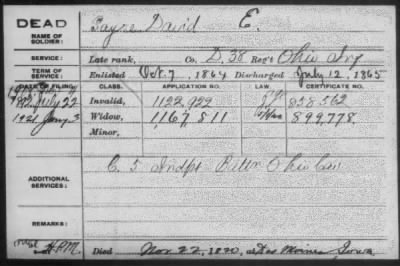 DEAD
NAME OF SOLDIER: David E.
SERVICE: Late rank, Co. D, 38 Reg't Ohio Inf
TERM OF SERVICE: Enlisted Oct. 7, 1864 Discharged July 12, 1865
DATE OF FILING. CLASS. APPLICATION NO. LAW. CERTIFICATE NO.
July 22 Invalid, 1122,922 858,562
1921 Jany 3 Widow, 1,167,811 899,778
Minor,
ADDITIONAL SERVICES: C. 5 Indpt Battn Ohio Cav
REMARKS:
Died Nov. 22, 1920, at Des Moines, Iowa